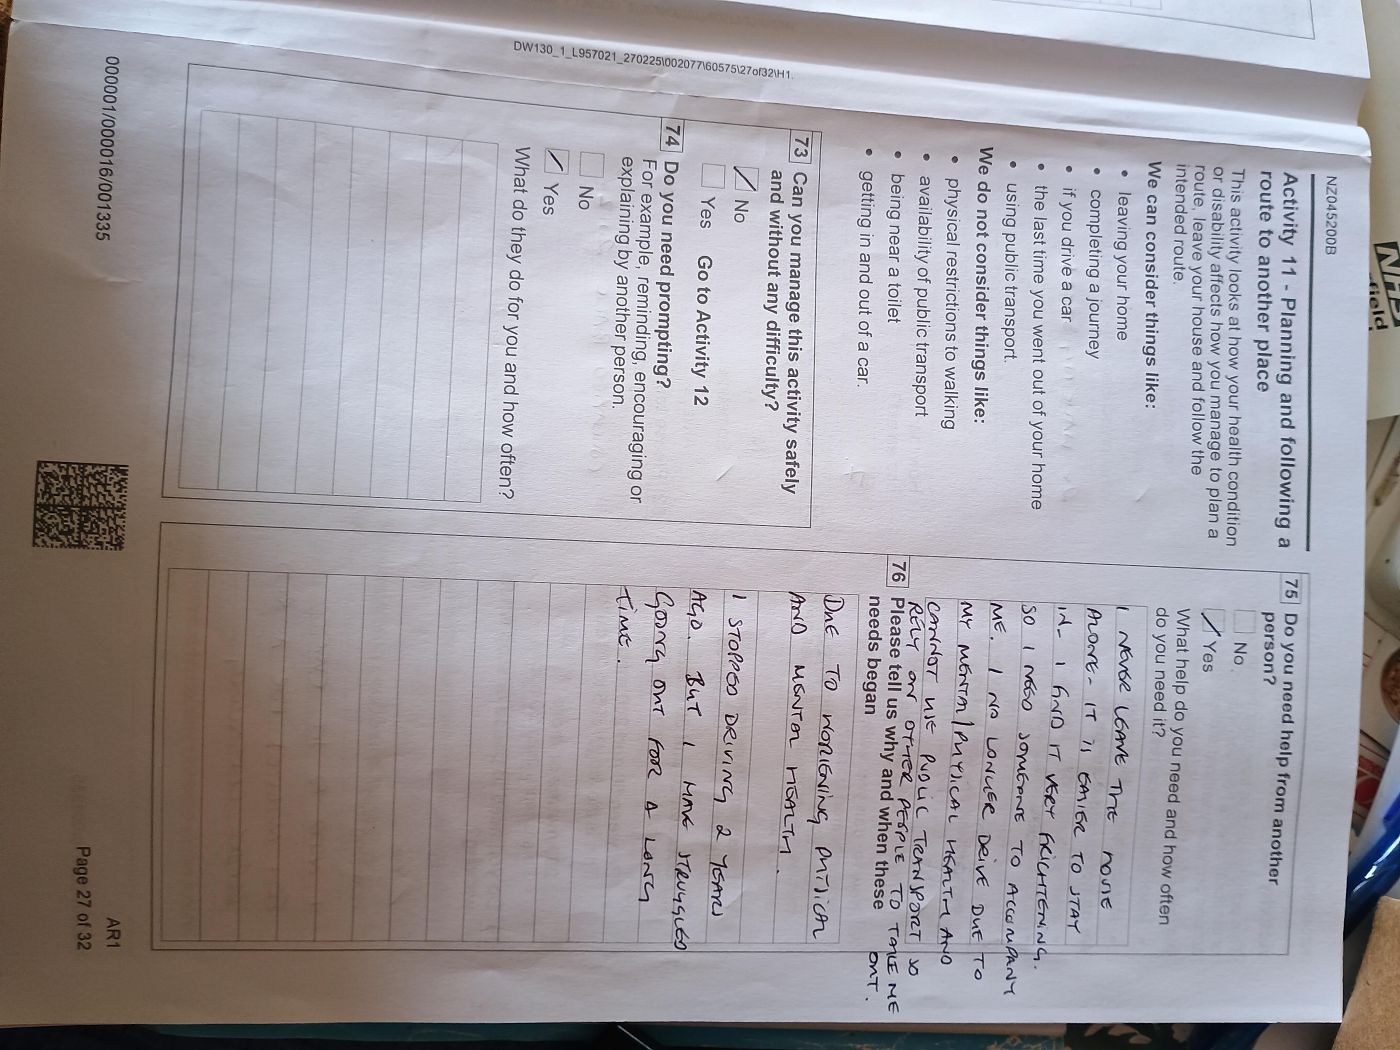 NZ045200B
Activity 11 - Planning and following a
route to another place
This activity looks at how your health condition
or disability affects how you manage to plan a
route, leave your house and follow the
intended route.
We can consider things like:
• leaving your home
• completing a journey
• if you drive a car
• the last time you went out of your home
• using public transport.
We do not consider things like:
• physical restrictions to walking
• availability of public transport
• being near a toilet
• getting in and out of a car.
73 Can you manage this activity safely
and without any difficulty?
No
Yes Go to Activity 12
74 Do you need prompting?
For example, reminding, encouraging or
explaining by another person.
No
Yes
What do they do for you and how often?
75 Do you need help from another
person?
No
Yes
What help do you need and how often
do you need it?
I NEVER LEAVE THE HOUSE
ALONE. IT IS EASIER TO STAY
IN. I FIND IT VERY FRIGHTENING.
SO I NEED SOMEONE TO ACCOMPANY
ME. I NO LONGER DRIVE DUE TO
MY MENTAL/PHYSICAL HEALTH AND
CANNOT USE PUBLIC TRANSPORT SO
RELY ON OTHER PEOPLE TO TAKE ME
OUT.
76 Please tell us why and when these
needs began
DUE TO WORSENING PHYSICAL
AND MENTAL HEALTH.
I STOPPED DRIVING 2 YEARS
AGO. BUT I HAVE STRUGGLED
GOING OUT FOR A LONG
TIME.
DW130_1_L957021_270225\002077\60575\27of32\H1.
000001/000016/001335
AR1
Page 27 of 32